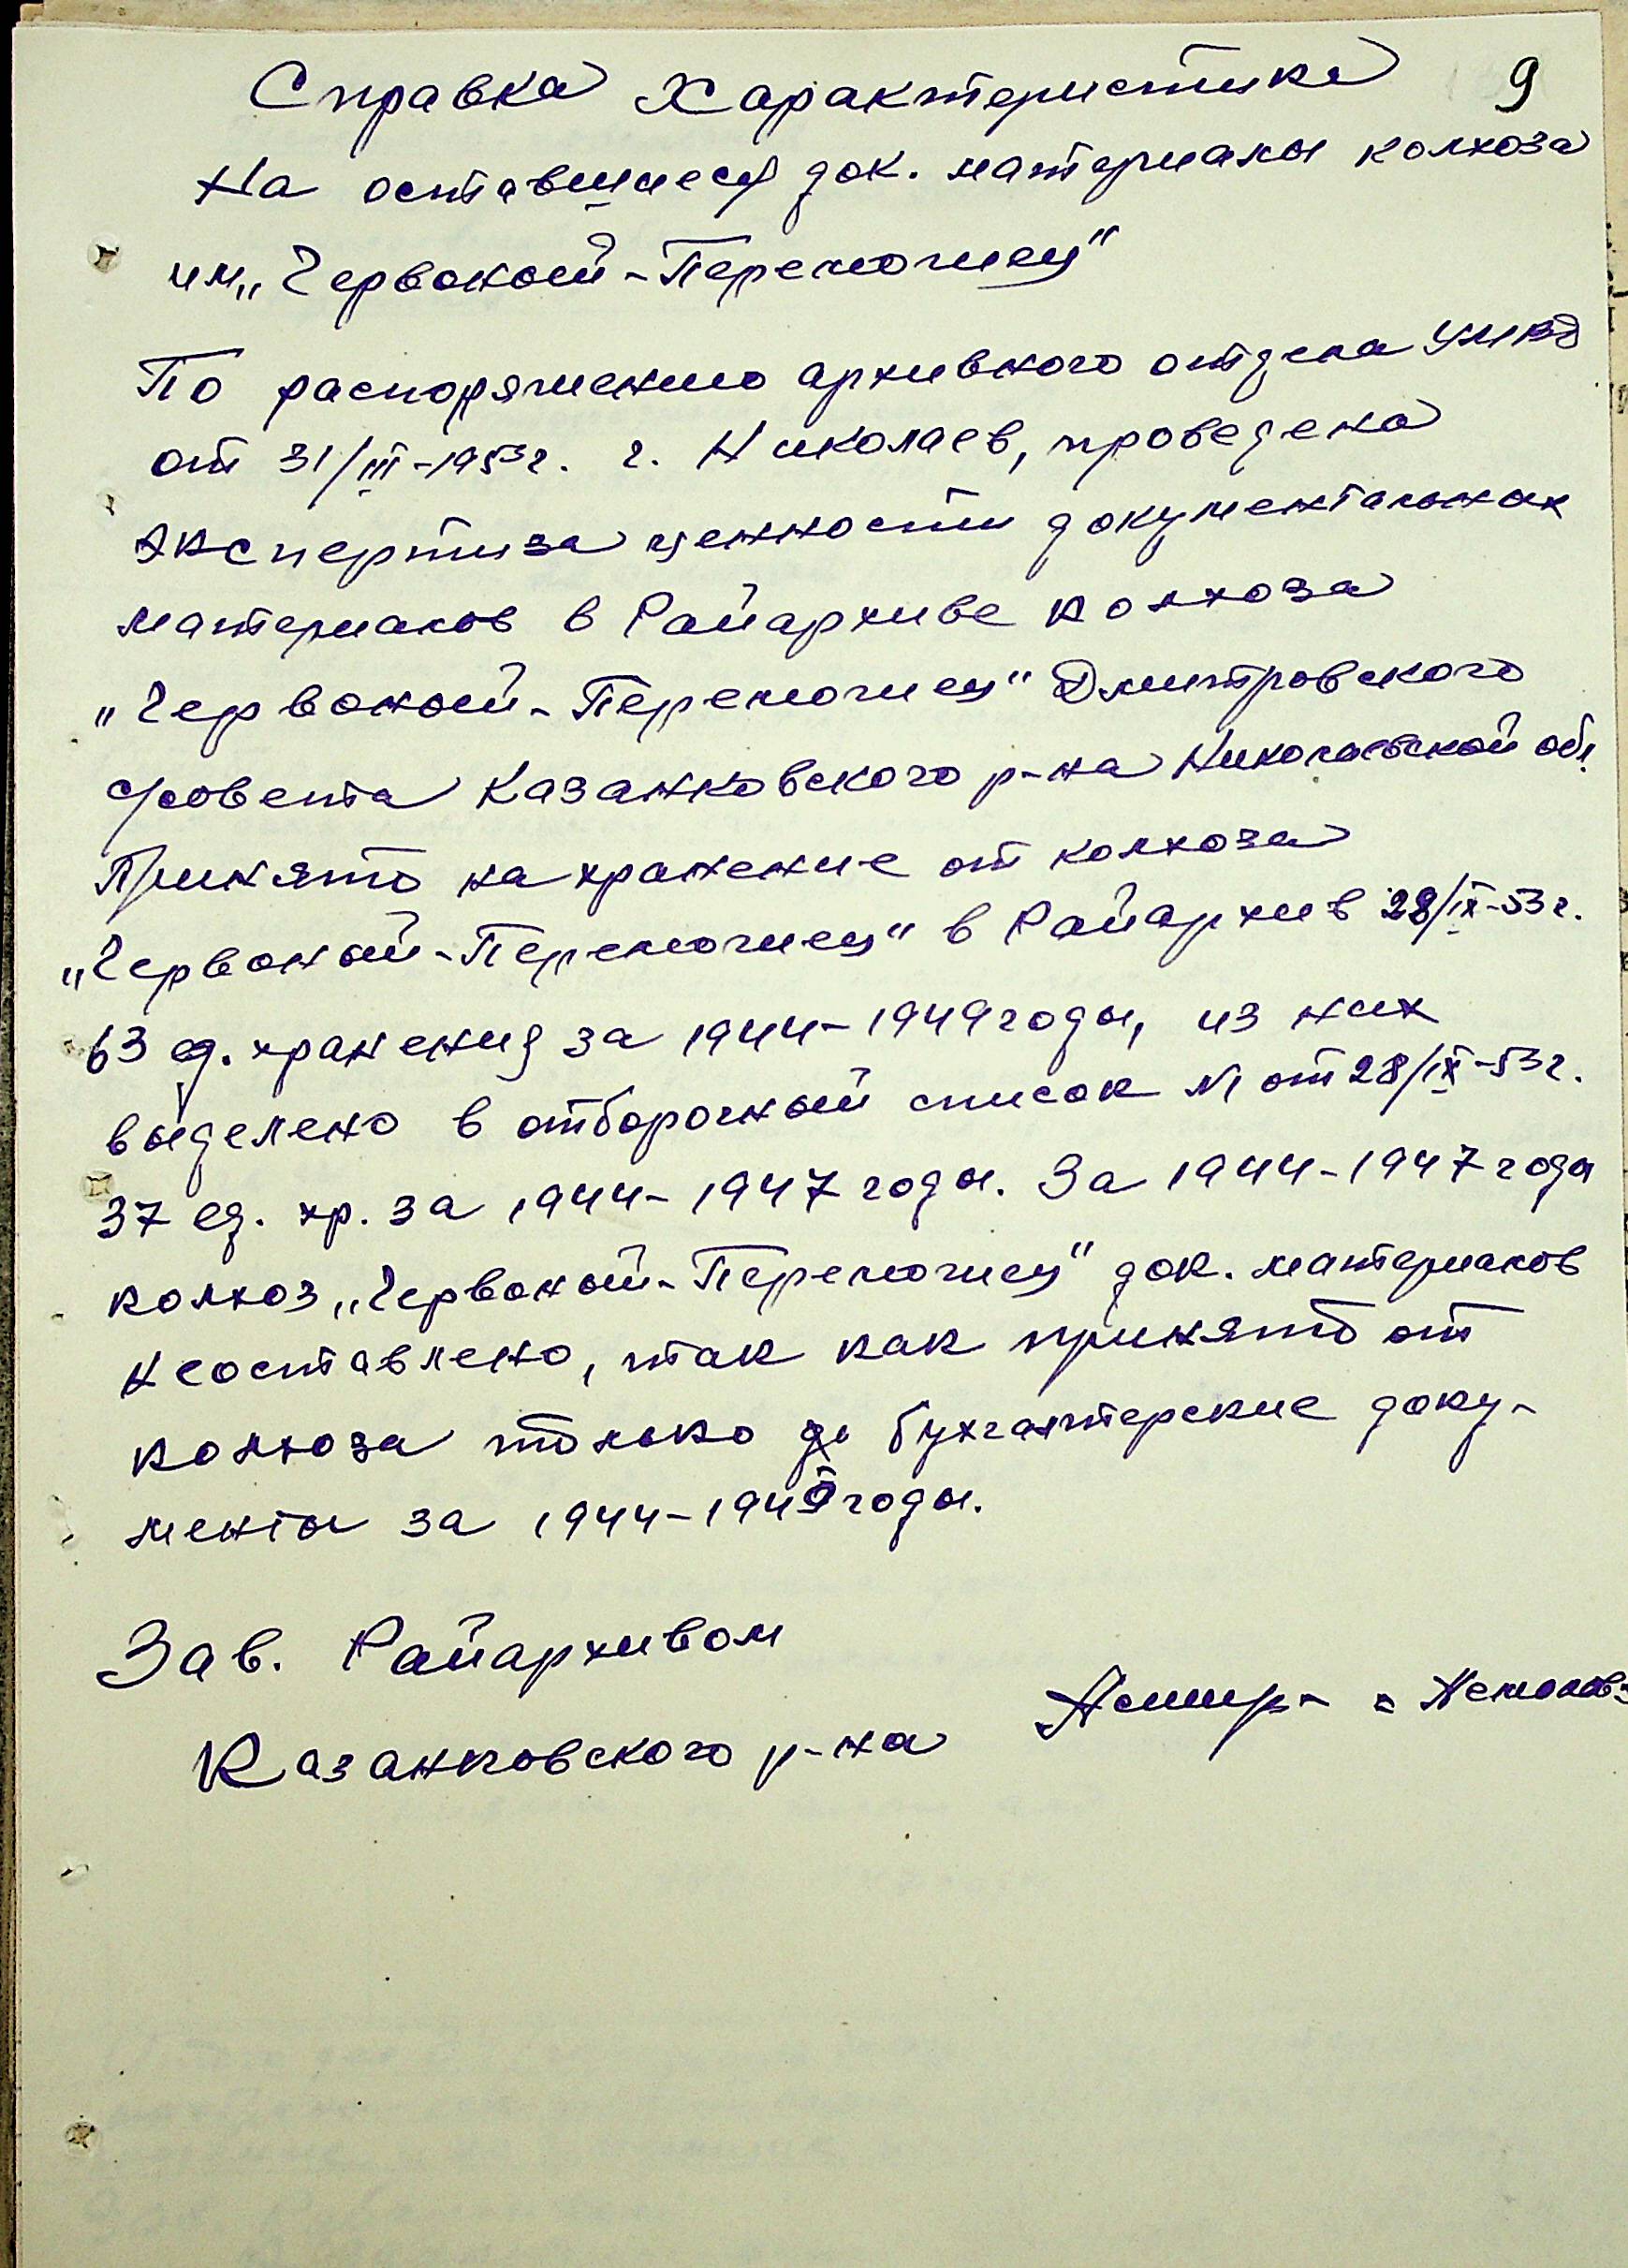 Справка Характеристика 9
На оставшиеся док. материалы колхоза
им „Червоный-Переможец"
По распоряжению архивного отдела УМВД
от 31/III-1953г. г. Николаев, проведена
экспертиза ценности документальных
материалов в Райархиве колхоза
„Червоный-Переможец" Дмитровского
с/совета Казанковского р-на Николаевской обл.
Принято на хранение от колхоза
„Червоный-Переможец" в Райархив 28/IX-53г.
63 ед. хранения за 1944-1949 годы, из них
выделено в отборочный список №1 от 28/IX-53г.
37 ед. хр. за 1944-1947 годы. За 1944-1947 года
колхоз „Червоный-Переможец" док. материалов
неоставлено, так как принято от
колхоза только бухгалтерские доку-
менты за 1944-1949 годы.
Зав. Райархивом
Казанковского р-на